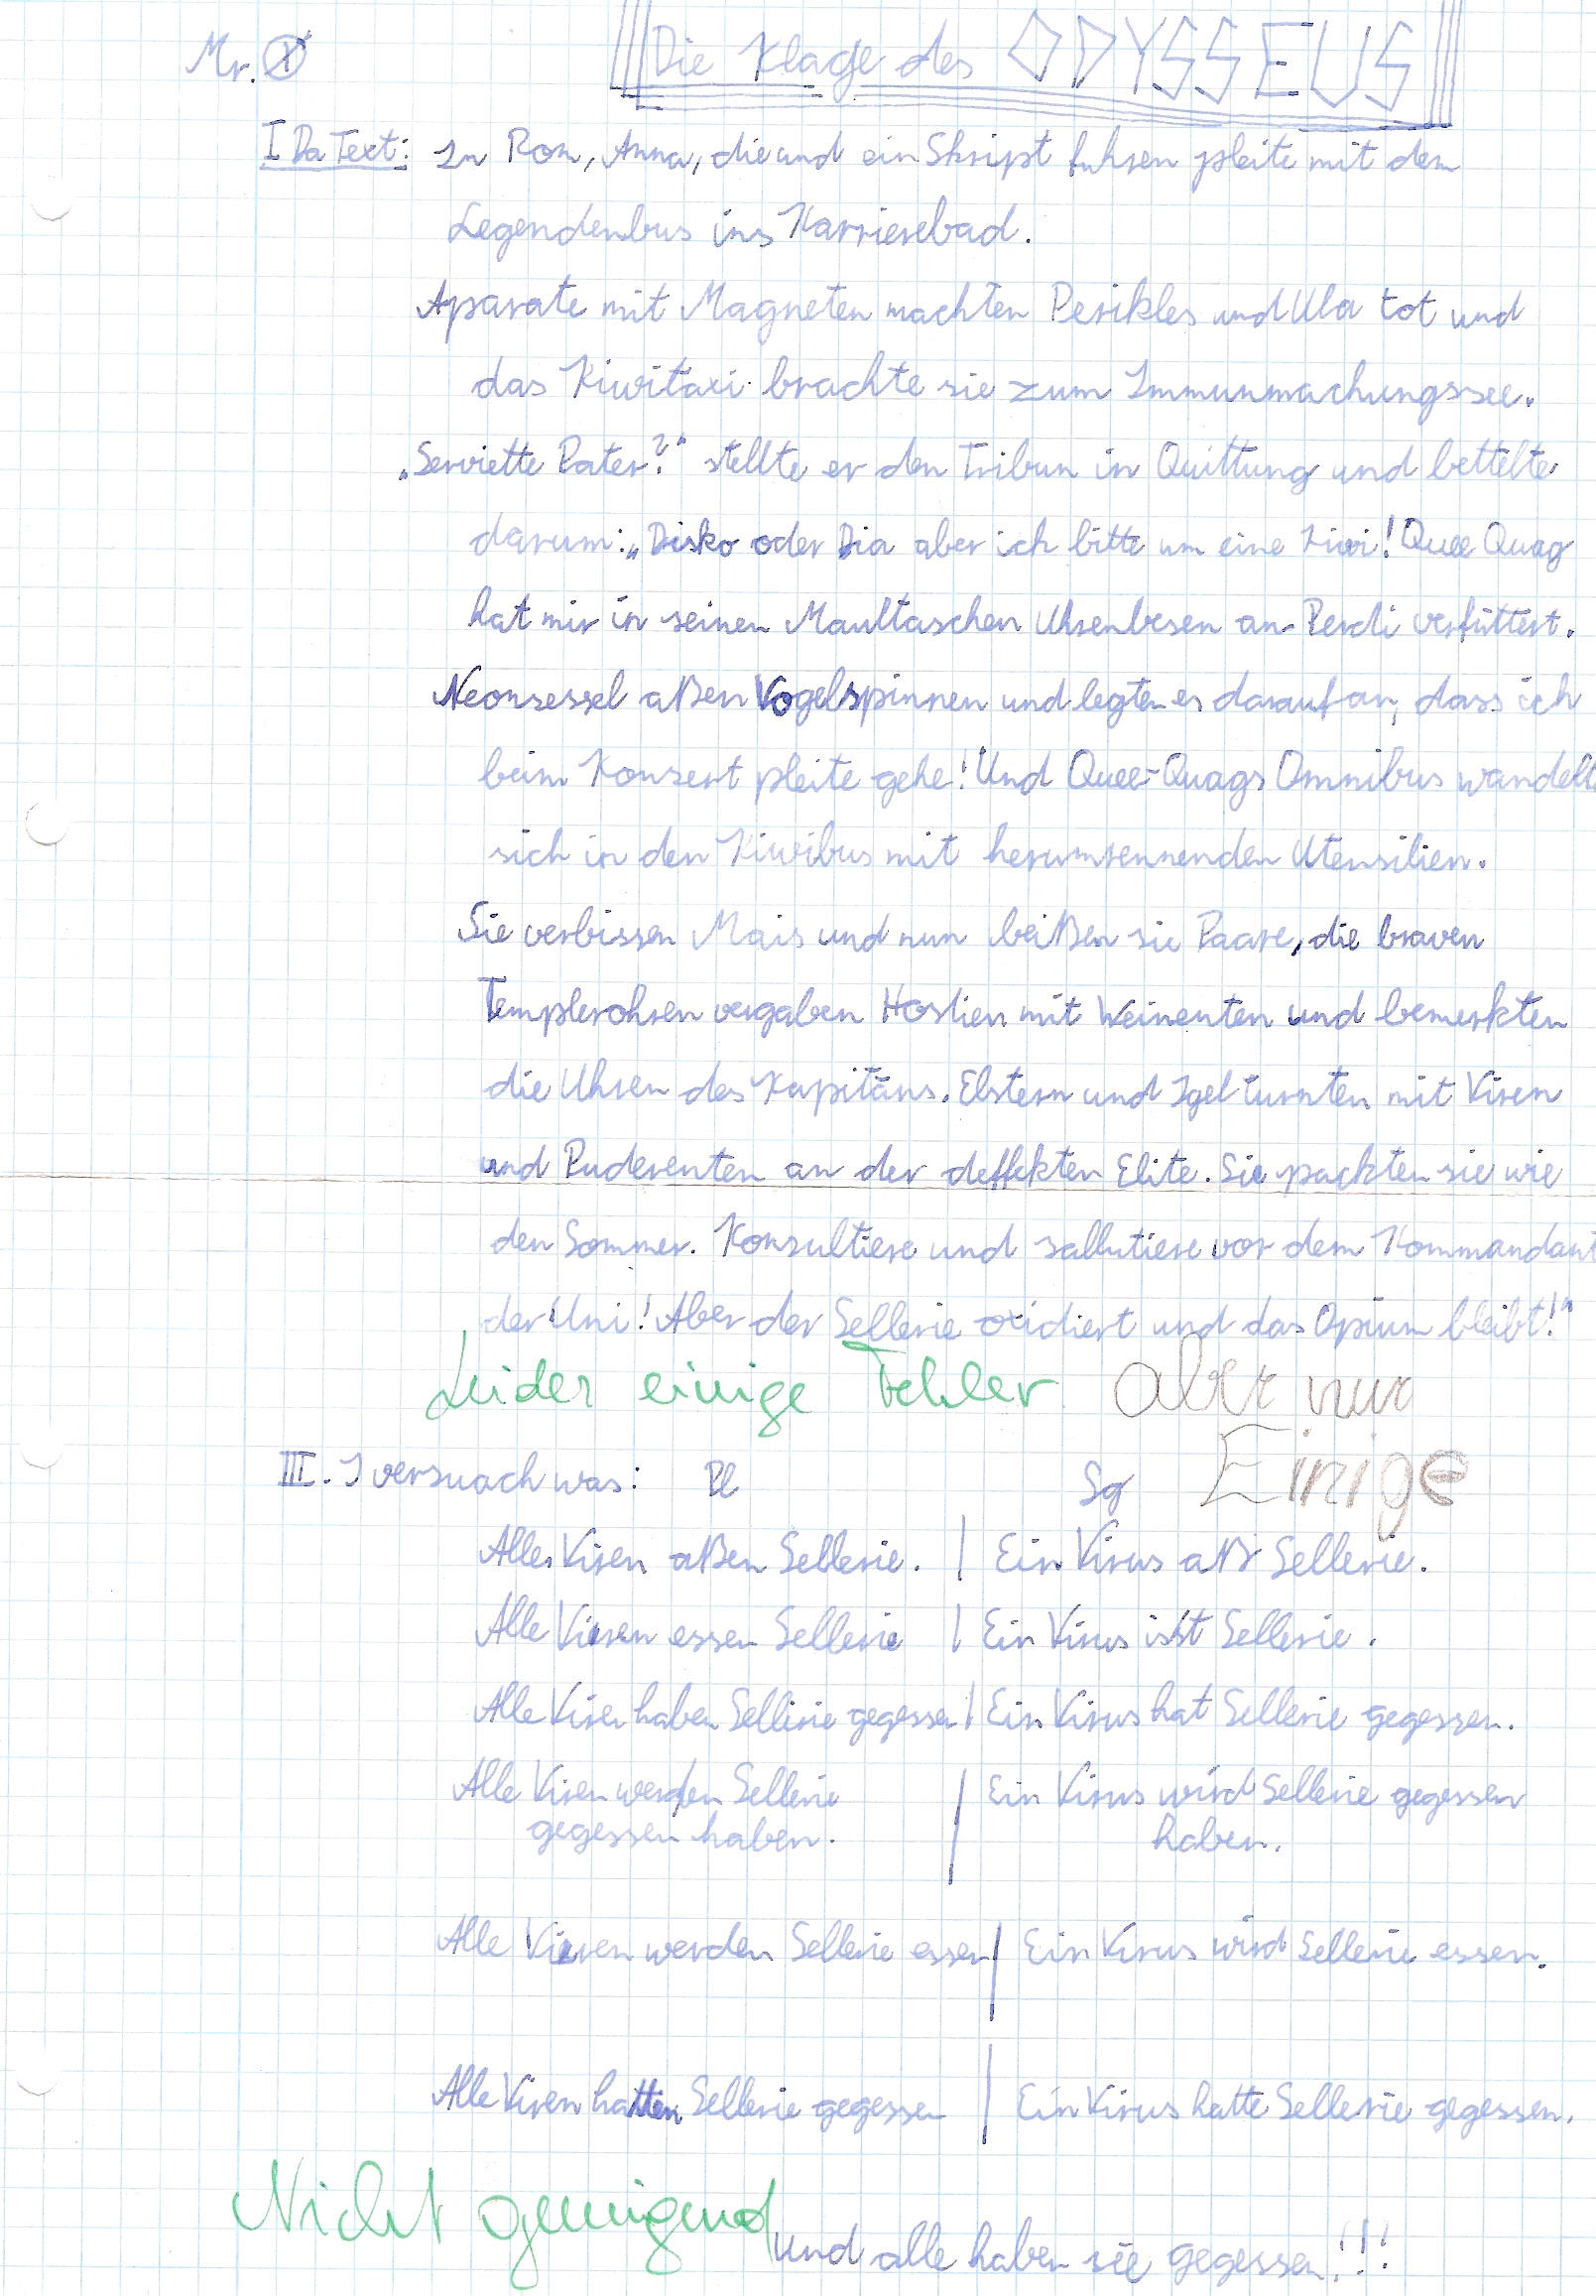 Mr. X
Die Klage des ODYSSEUS
I Da Text: In Rom, Anna, die und ein Skript fuhren pleite mit dem
Legendenbus ins Karrierebad.
Aparate mit Magneten machten Perikles und Ula tot und
das Kiwitaxi brachte sie zum Immunmachungssee.
„Serviette Pater?“ stellte er den Tribun in Quittung und bettelte
darum: „Disko oder Dia aber ich bitte um eine Kiwi! Quee Quag
hat mir in seinen Maultaschen Uhrenbesen an Perdi verfüttert.
Neonsessel aßen Vogelspinnen und legten es darauf an, dass ich
beim Konzert pleite gehe! Und Quee-Quags Omnibus wandelte
sich in den Kiwibus mit herumrennenden Utensilien.
Sie verbissen Mais und nun beißen sie Paare, die braven
Templerohren vergaben Hostien mit Weinenten und bemerkten
die Uhren des Kapitäns. Elstern und Igel turnten mit Viren
und Puderenten an der deffekten Elite. Sie packten sie wie
den Sommer. Konsultiere und sallutiere vor dem Kommandant
der Uni! Aber der Sellerie oxidiert und das Opium bleibt!“
Leider einige Fehler aber nur
Einige
III. I versuach was: Pl Sg
Alle Viren aßen Sellerie. | Ein Virus aß Sellerie.
Alle Viren essen Sellerie | Ein Virus isst Sellerie.
Alle Viren haben Sellerie gegessen | Ein Virus hat Sellerie gegessen.
Alle Viren werden Sellerie | Ein Virus wird Sellerie gegessen
gegessen haben. haben.
Alle Viren werden Sellerie essen | Ein Virus wird Sellerie essen.
Alle Viren hatten Sellerie gegessen | Ein Virus hatte Sellerie gegessen.
Nicht genügend und alle haben sie gegessen!!!